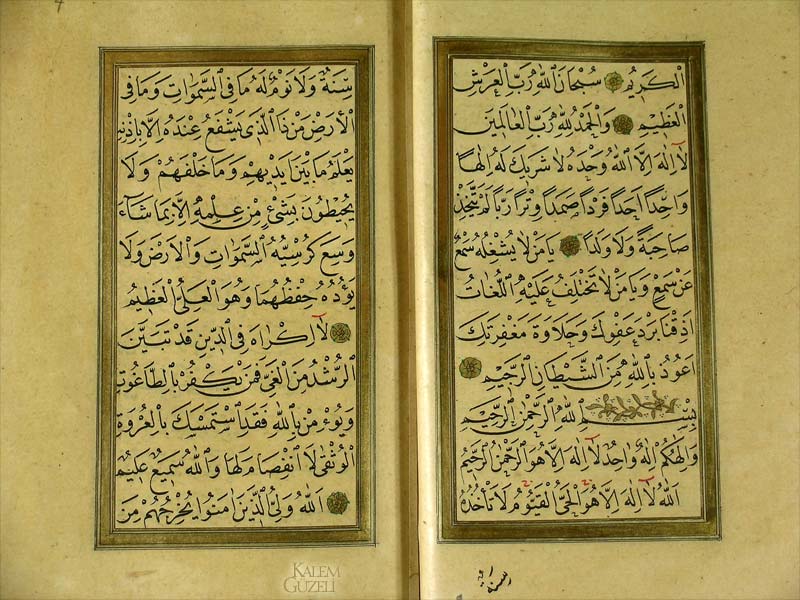 الْكَرِيمُ سُبْحَانَ اللّٰهِ رَبِّ الْعَرْشِ
الْعَظِيمِ وَالْحَمْدُ لِلّٰهِ رَبِّ الْعَالَمِينَ
لَا اِلٰهَ اِلَّا اللّٰهُ وَحْدَهُ لَا شَرِيكَ لَهُ اِلٰهًا
وَاحِدًا اَحَدًا فَرْدًا صَمَدًا وِتْرًا رَبًّا لَمْ يَتَّخِذْ
صَاحِبَةً وَلَا وَلَدًا يَا مَنْ لَا يَشْغَلُهُ سَمْعٌ
عَنْ سَمْعٍ وَيَا مَنْ لَا تَخْتَلِفُ عَلَيْهِ اللُّغَاتُ
اَذِقْنَا بَرْدَ عَفْوِكَ وَحَلَاوَةَ مَغْفِرَتِكَ
اَعُوذُ بِاللّٰهِ مِنَ الشَّيْطَانِ الرَّجِيمِ
بِسْمِ اللّٰهِ الرَّحْمٰنِ الرَّحِيمِ
وَاِلٰهُكُمْ اِلٰهٌ وَاحِدٌ لَا اِلٰهَ اِلَّا هُوَ الرَّحْمٰنُ الرَّحِيمُ
اَللّٰهُ لَا اِلٰهَ اِلَّا هُوَ الْحَيُّ الْقَيُّومُ لَا تَأْخُذُهُ
سِنَةٌ
سِنَةٌ وَلَا نَوْمٌ لَهُ مَا فِي السَّمٰوَاتِ وَمَا فِي
الْاَرْضِ مَنْ ذَا الَّذِي يَشْفَعُ عِنْدَهُ اِلَّا بِاِذْنِهِ
يَعْلَمُ مَا بَيْنَ اَيْدِيهِمْ وَمَا خَلْفَهُمْ وَلَا
يُحِيطُونَ بِشَيْءٍ مِنْ عِلْمِهِ اِلَّا بِمَا شَاءَ
وَسِعَ كُرْسِيُّهُ السَّمٰوَاتِ وَالْاَرْضَ وَلَا
يَؤُدُهُ حِفْظُهُمَا وَهُوَ الْعَلِيُّ الْعَظِيمُ
لَا اِكْرَاهَ فِي الدِّينِ قَدْ تَبَيَّنَ
الرُّشْدُ مِنَ الْغَيِّ فَمَنْ يَكْفُرْ بِالطَّاغُوتِ
وَيُؤْمِنْ بِاللّٰهِ فَقَدِ اسْتَمْسَكَ بِالْعُرْوَةِ
الْوُثْقٰى لَا انْفِصَامَ لَهَا وَاللّٰهُ سَمِيعٌ عَلِيمٌ
اَللّٰهُ وَلِيُّ الَّذِينَ اٰمَنُوا يُخْرِجُهُمْ مِنَ
KALEM
GÜZELİ